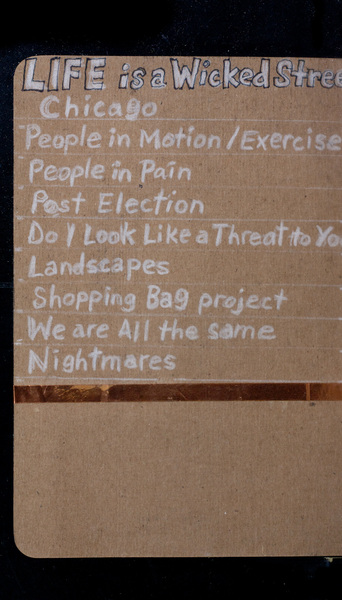 LIFE is a Wicked Stree
Chicago
People in Motion / Exercise
People in Pain
Post Election
Do I Look Like a Threat to Yo
Landscapes
Shopping Bag project
We are All the same
Nightmares